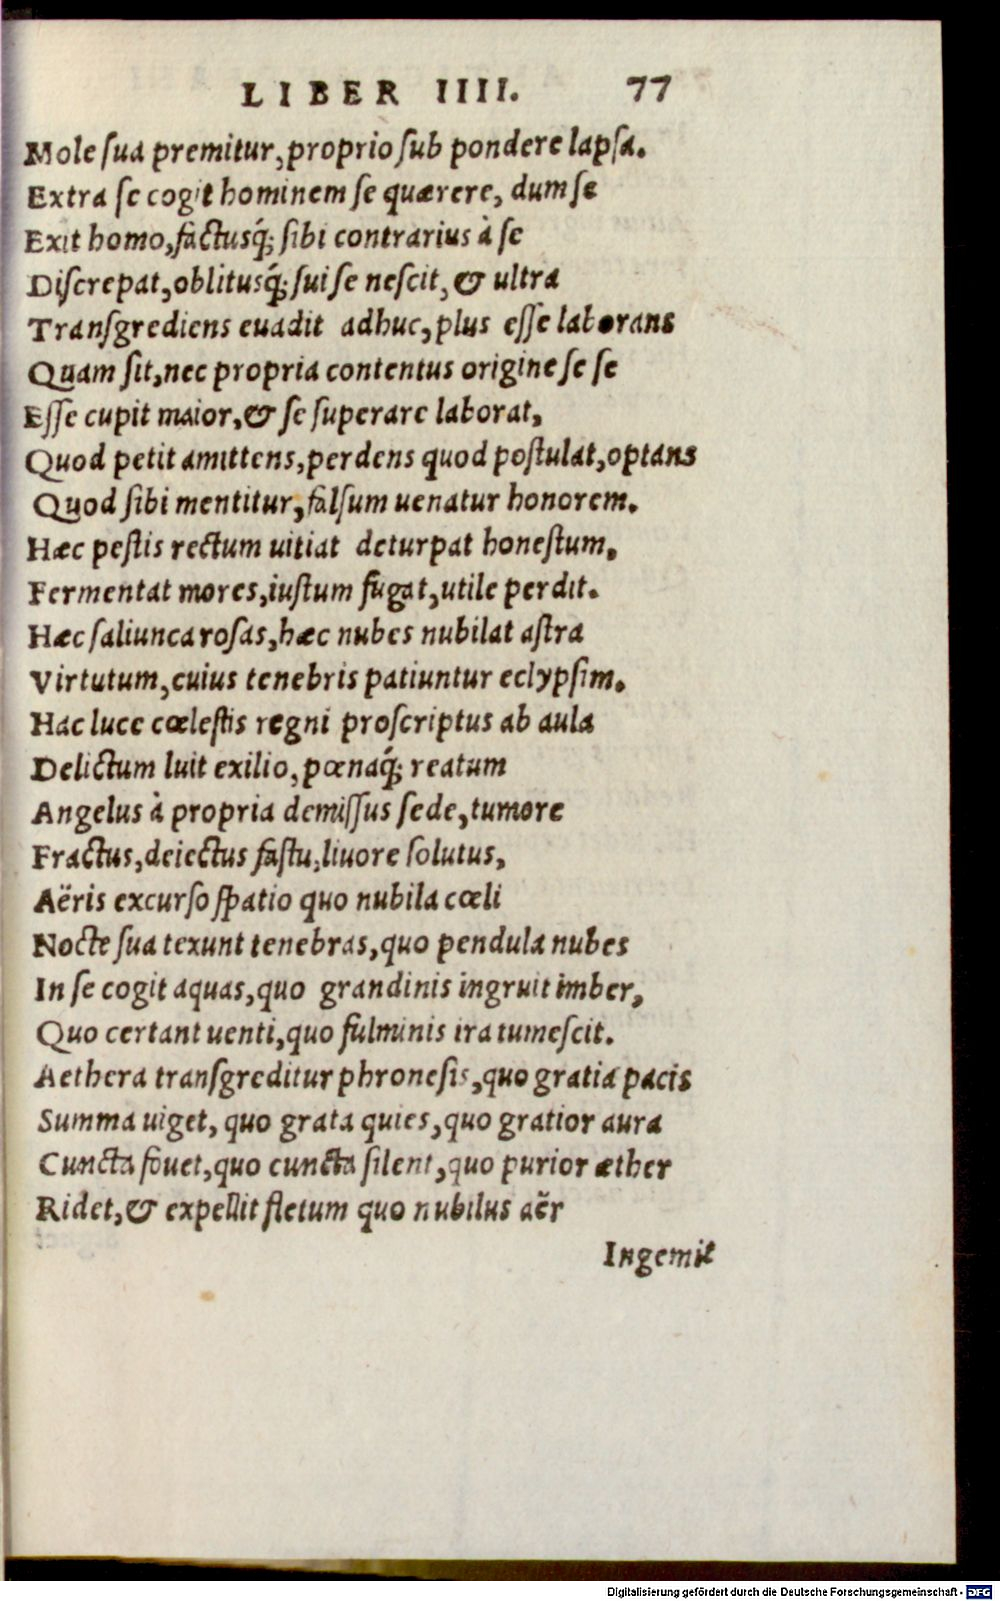 LIBER IIII. 77
Mole ſua premitur, proprio ſub pondere lapſa.
Extra ſe cogit hominem ſe quærere, dum ſe
Exit homo, factusq́; ſibi contrarius à ſe
Diſcrepat, oblitusq́; ſui ſe neſcit, & ultra
Tranſgrediens euadit adhuc, plus eſſe laborans
Quam ſit, nec propria contentus origine ſe ſe
Eſſe cupit maior, & ſe ſuperare laborat,
Quod petit amittens, perdens quod poſtulat, optans
Quod ſibi mentitur, falſum uenatur honorem.
Hæc peſtis rectum uitiat deturpat honeſtum,
Fermentat mores, iuſtum fugat, utile perdit.
Hæc ſaliunca roſas, hæc nubes nubilat aſtra
Virtutum, cuius tenebris patiuntur eclypſim.
Hac luce cœleſtis regni proſcriptus ab aula
Delictum luit exilio, pœnaq́; reatum
Angelus à propria demiſſus ſede, tumore
Fractus, deiectus faſtu, liuore ſolutus,
Aëris excurſo ſpatio quo nubila cœli
Nocte ſua texunt tenebras, quo pendula nubes
In ſe cogit aquas, quo grandinis ingruit imber,
Quo certant uenti, quo fulminis ira tumeſcit.
Aethera tranſgreditur phroneſis, quo gratia pacis
Summa uiget, quo grata quies, quo gratior aura
Cuncta fouet, quo cuncta ſilent, quo purior æther
Ridet, & expellit fletum quo nubilus aër
Ingemit
Digitalisierung gefördert durch die Deutsche Forschungsgemeinschaft - DFG